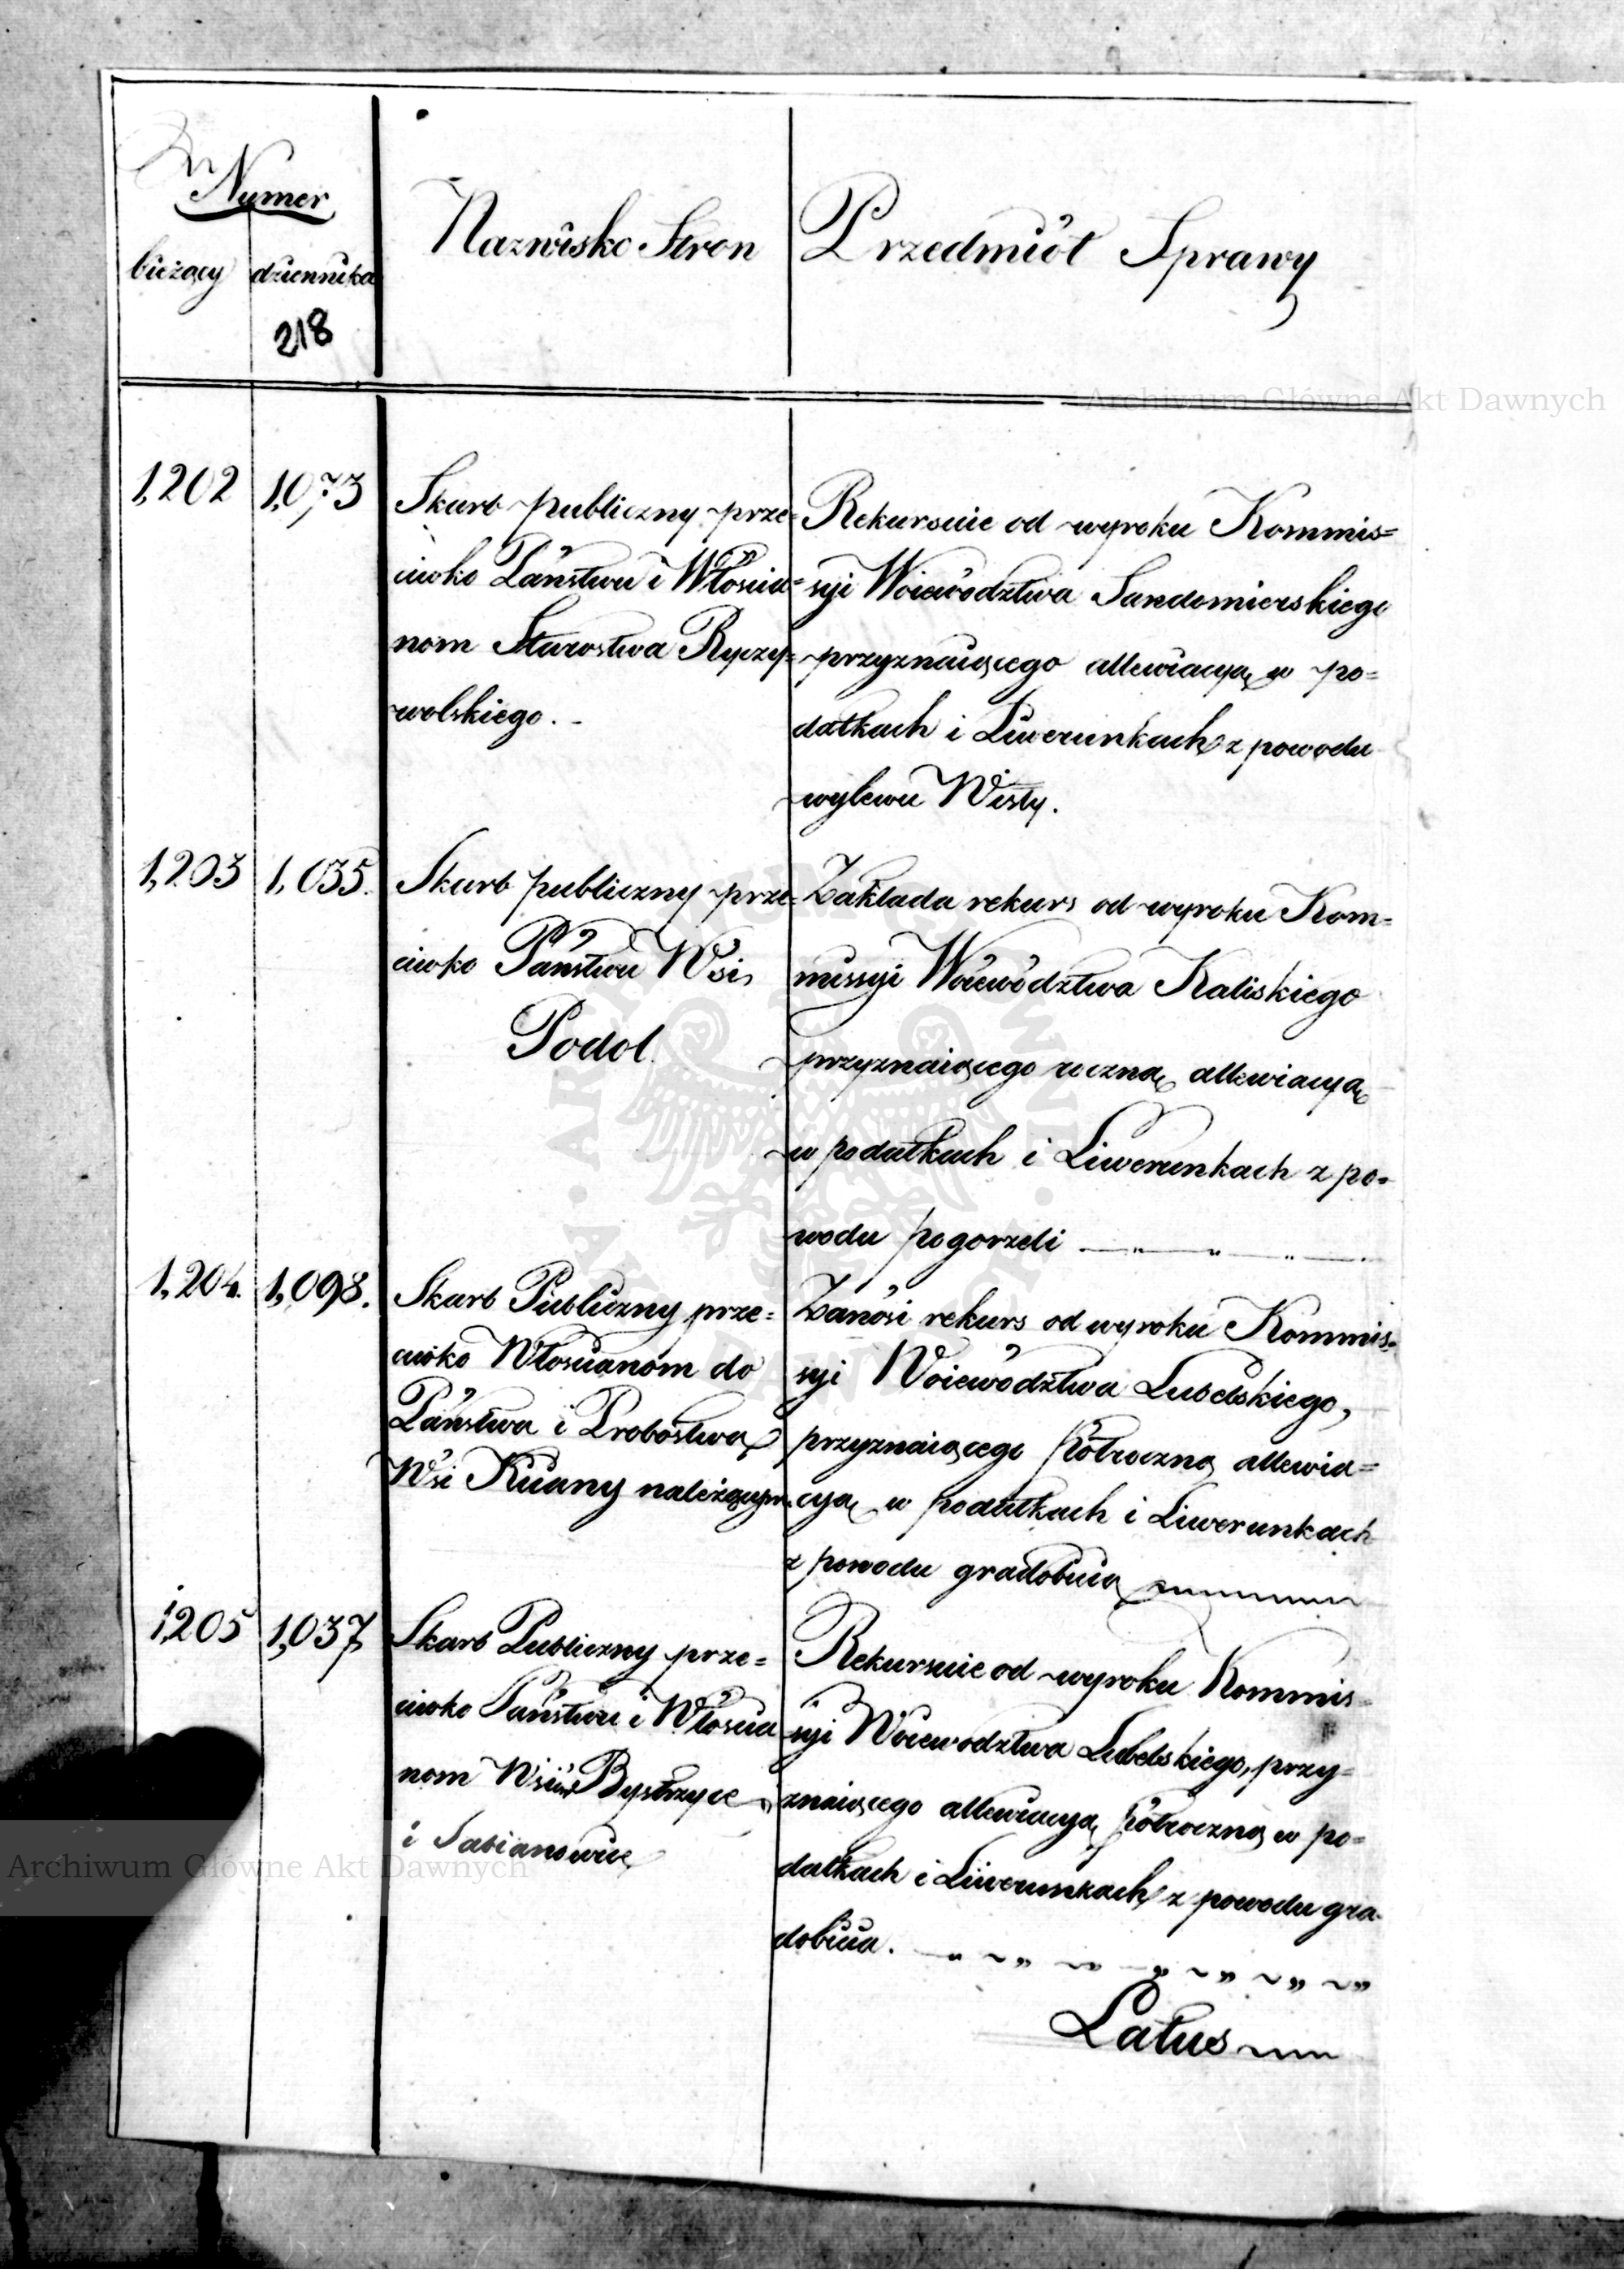 Numer
bieżący dziennika
218
Nazwisko Stron
Przedmiót Sprawy
Archiwum Główne Akt Dawnych
1,202 1,073
Skarb publiczny prze=
ciwko Państwu i Włościa=
nom Starostwa Ryczy=
wolskiego. -
Rekursuie od wyroku Kommis=
syi Woiewództwa Sandomierskiego
przyznaiącego allewiacyą w po=
datkach i Liwerunkach z powodu
wylewu Wisły.
1,203 1,035.
Skarb publiczny prze=
ciwko Państwu Wsi
Podol.
Zakłada rekurs od wyroku Kom=
missyi Woiewództwa Kaliskiego
przyznaiącego roczną allewiacyą
w podatkach i Liwerunkach z po=
wodu pogorzeli
1,204. 1,098.
Skarb Publiczny prze=
ciwko Włościanom do
Państwa i Probostwa
Wsi Kiiany należącym
Zanosi rekurs od wyroku Kommis=
syi Woiewództwa Lubelskiego,
przyznaiącego półroczną allewia=
cyą w podatkach i Liwerunkach
z powodu gradobicia
1205 1,037
Skarb Publiczny prze=
ciwko Państwu i Włościa
nom Wsiów Bystrzyce
i
Rekursuie od wyroku Kommis=
syi Woiewodztwa Lubelskiego, przy=
znaiącego allewiacyą półroczną w po=
datkach i Liwerunkach z powodu gra
dobicia.
Latus
Archiwum Główne Akt Dawnych